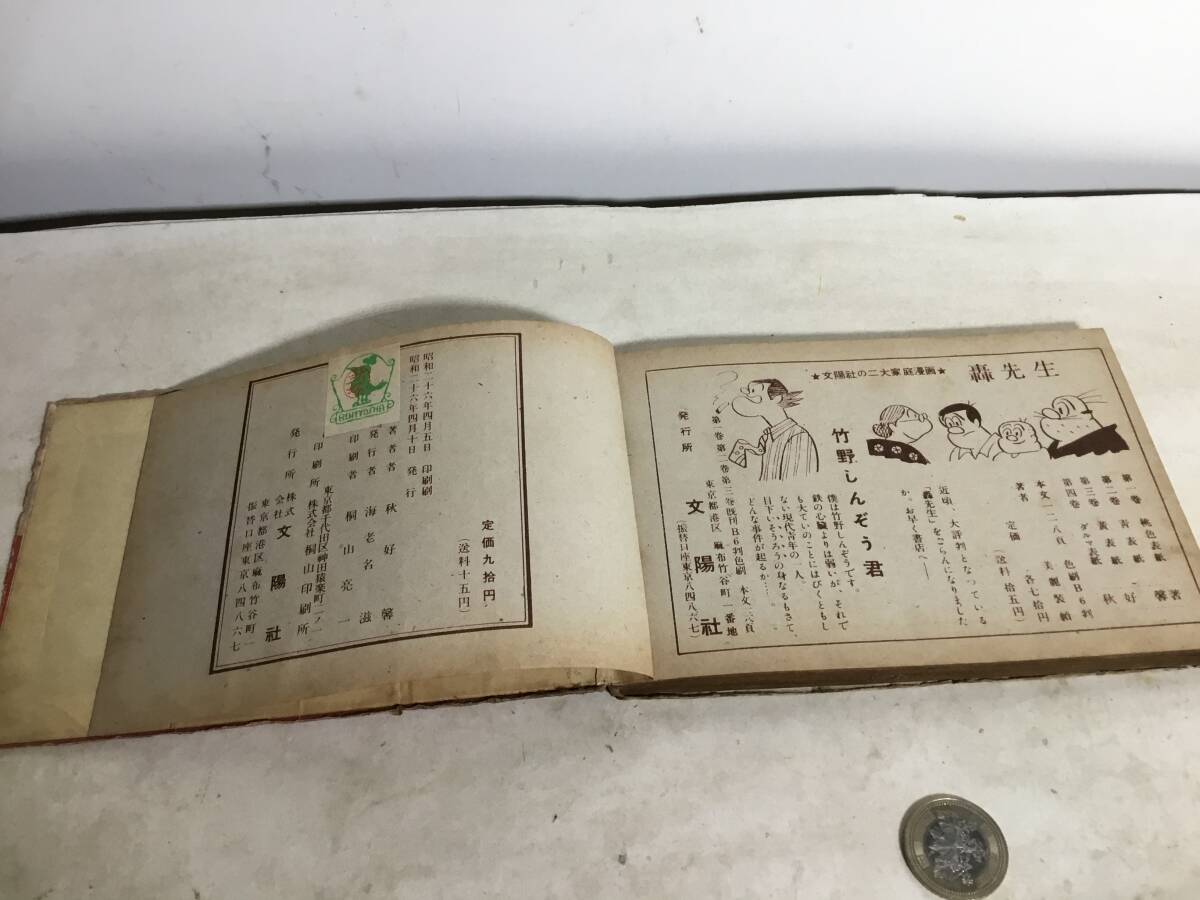 轟先生
★文陽社の二大家庭漫画★
近頃、大評判となっている
「轟先生」をごらんになりました
か。お早く書店へ——
第一巻 桃色表紙
第二巻 青表紙
第三巻 黄表紙
第四巻 ダルマ表紙
色刷B6判
本文一二八頁 美麗製本
定価 各七拾円
(送料拾五円)
著者 秋好馨著
竹野しんぞう君
僕は竹野しんぞうです。
鉄の心臓よりは弱いが、それで
も大ていのことにはびくともし
ない現代青年の一人。
目下いそうろうの身なるもさて、
どんな事件が起るか…。
第一巻第二巻第三巻既刊B6判色刷
発行所
東京都港区麻布竹谷町一番地
文陽社
(振替口座東京八四八六七)
定価九拾円
(送料十五円)
昭和二十六年四月五日 印刷
昭和二十六年四月十日 発行
BUNYOSHA
著者 秋好馨
発行者 海老名滋
印刷者 桐山亮一
東京都千代田区神田猿楽町二ノ一
印刷所 株式会社桐山印刷所
発行所 株式会社 文陽社
東京都港区麻布竹谷町一
振替口座東京八四八六七